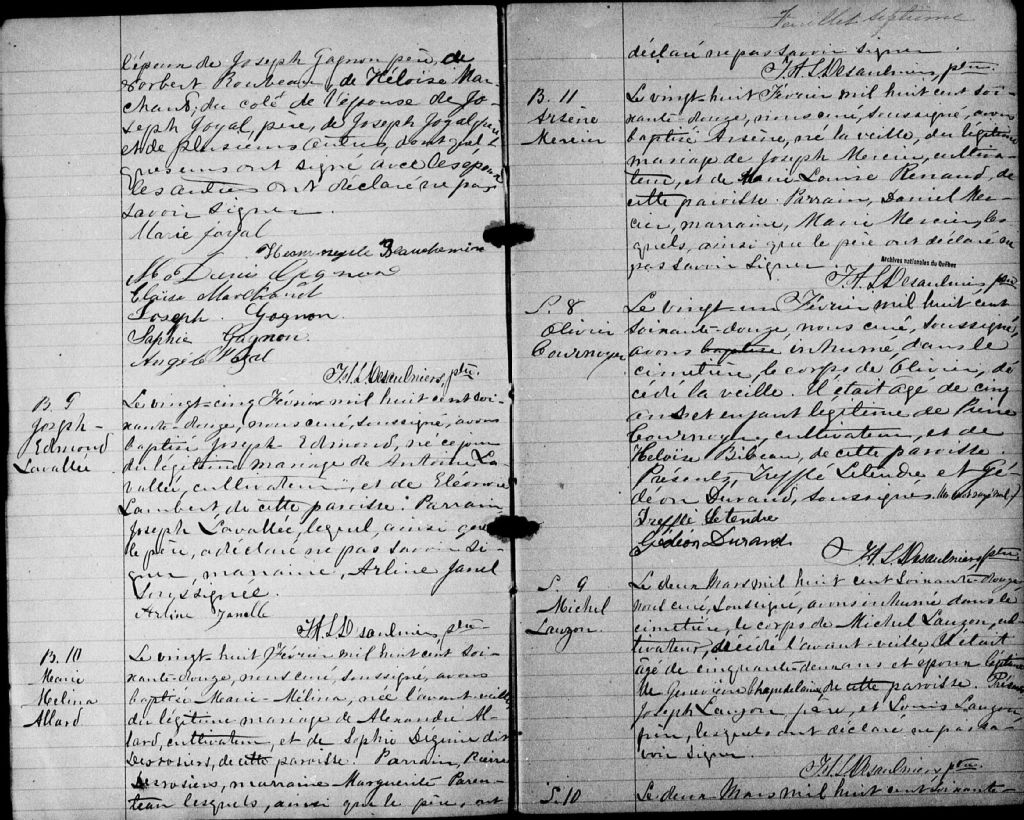 l'époux de Joseph Gagnon père, de
Norbert Rouleau, de Héloïse Mar-
chand, du coté de l'épouse de Jo-
seph Joyal, père, de Joseph Joyal, père
et de plusieurs autres, dont quel-
ques uns ont signé avec les époux
les autres ont déclaré ne pas
savoir signer.
Marie Joyal
Beauchemin
Gagnon
Eloïse Marchand
Joseph Gagnon.
Saphie Gagnon.
Angèle
J.A.S. Desaulniers, ptre.
B. 9
Joseph-
Edmond
Lavallée
Le vingt-cinq Février mil huit cent soi-
xante-douze, nous curé, soussigné, avons
baptisé Joseph Edmond, né ce jour
du légitime mariage de Antoine La-
vallée, cultivateur, et de Eléonore
Lambert, de cette paroisse. Parrain
Joseph Lavallée, lequel, ainsi que
le père, a déclaré ne pas savoir si-
gner, marraine, Arline Janel
soussignée.
Arline Janelle
J.A.S. Desaulniers, ptre
B. 10
Marie
Mélina
Allard
Le vingt-huit Février mil huit cent soi-
xante-douze, nous curé, soussigné, avons
baptisé Marie-Mélina, née l'avant-veille
du légitime mariage de Alexandre Al-
lard, cultivateur, et de Sophie Deguire dit
Desrosiers, de cette paroisse. Parrain, Pierre
Desrosiers, marraine Marguerite Paren-
teau lesquels, ainsi que le père, ont
Feuillet septième
déclaré ne pas savoir signer.
J.A.S. Desaulniers, ptre.
B. 11
Arsène
Mercier
Le vingt-huit Février mil huit cent soi-
xante-douze, nous curé, soussigné, avons
baptisé Arsène, né la veille, du légitime
mariage de Joseph Mercier, cultiva-
teur, et de Marie Louise Renaud, de
cette paroisse. Parrain, Daniel Mer-
cier, marraine, Marie Mercier, les-
quels, ainsi que le père ont déclaré ne
pas savoir signer.
Archives nationales du Québec
J.A.S. Desaulniers, ptre
S. 8
Olivier
Cournoyer
Le vingt-un Février mil huit cent
soixante-douze, nous curé, soussigné,
avons baptisé inhumé, dans le
cimetière, le corps de Olivier, dé-
cédé la veille. Il était agé de cinq
ans et enfant légitime de Pierre
Cournoyer, cultivateur, et de
Héloïse Bibeau, de cette paroisse.
Présents, Trefflé Letendre et Gé-
déon Durand, soussignés. (un mot rayé nul)
Trefflé Letendre
Gédéon Durand
J.A.S. Desaulniers, ptre
S. 9
Michel
Lauzon.
Le deux Mars mil huit cent soixante-douze
nous curé, soussigné, avons inhumé dans le
cimetière, le corps de Michel Lauzon, cul-
tivateur, décédé l'avant-veille. Il était
agé de cinquante-deux ans et époux légitime
de Geneviève Chapdelaine, de cette paroisse. Présents
Joseph Lauzon père, et Louis Lauzon
père, lesquels ont déclaré ne pas sa-
voir signer.
J.A.S. Desaulniers, ptre.
S. 10
Le deux Mars mil huit cent soixante-